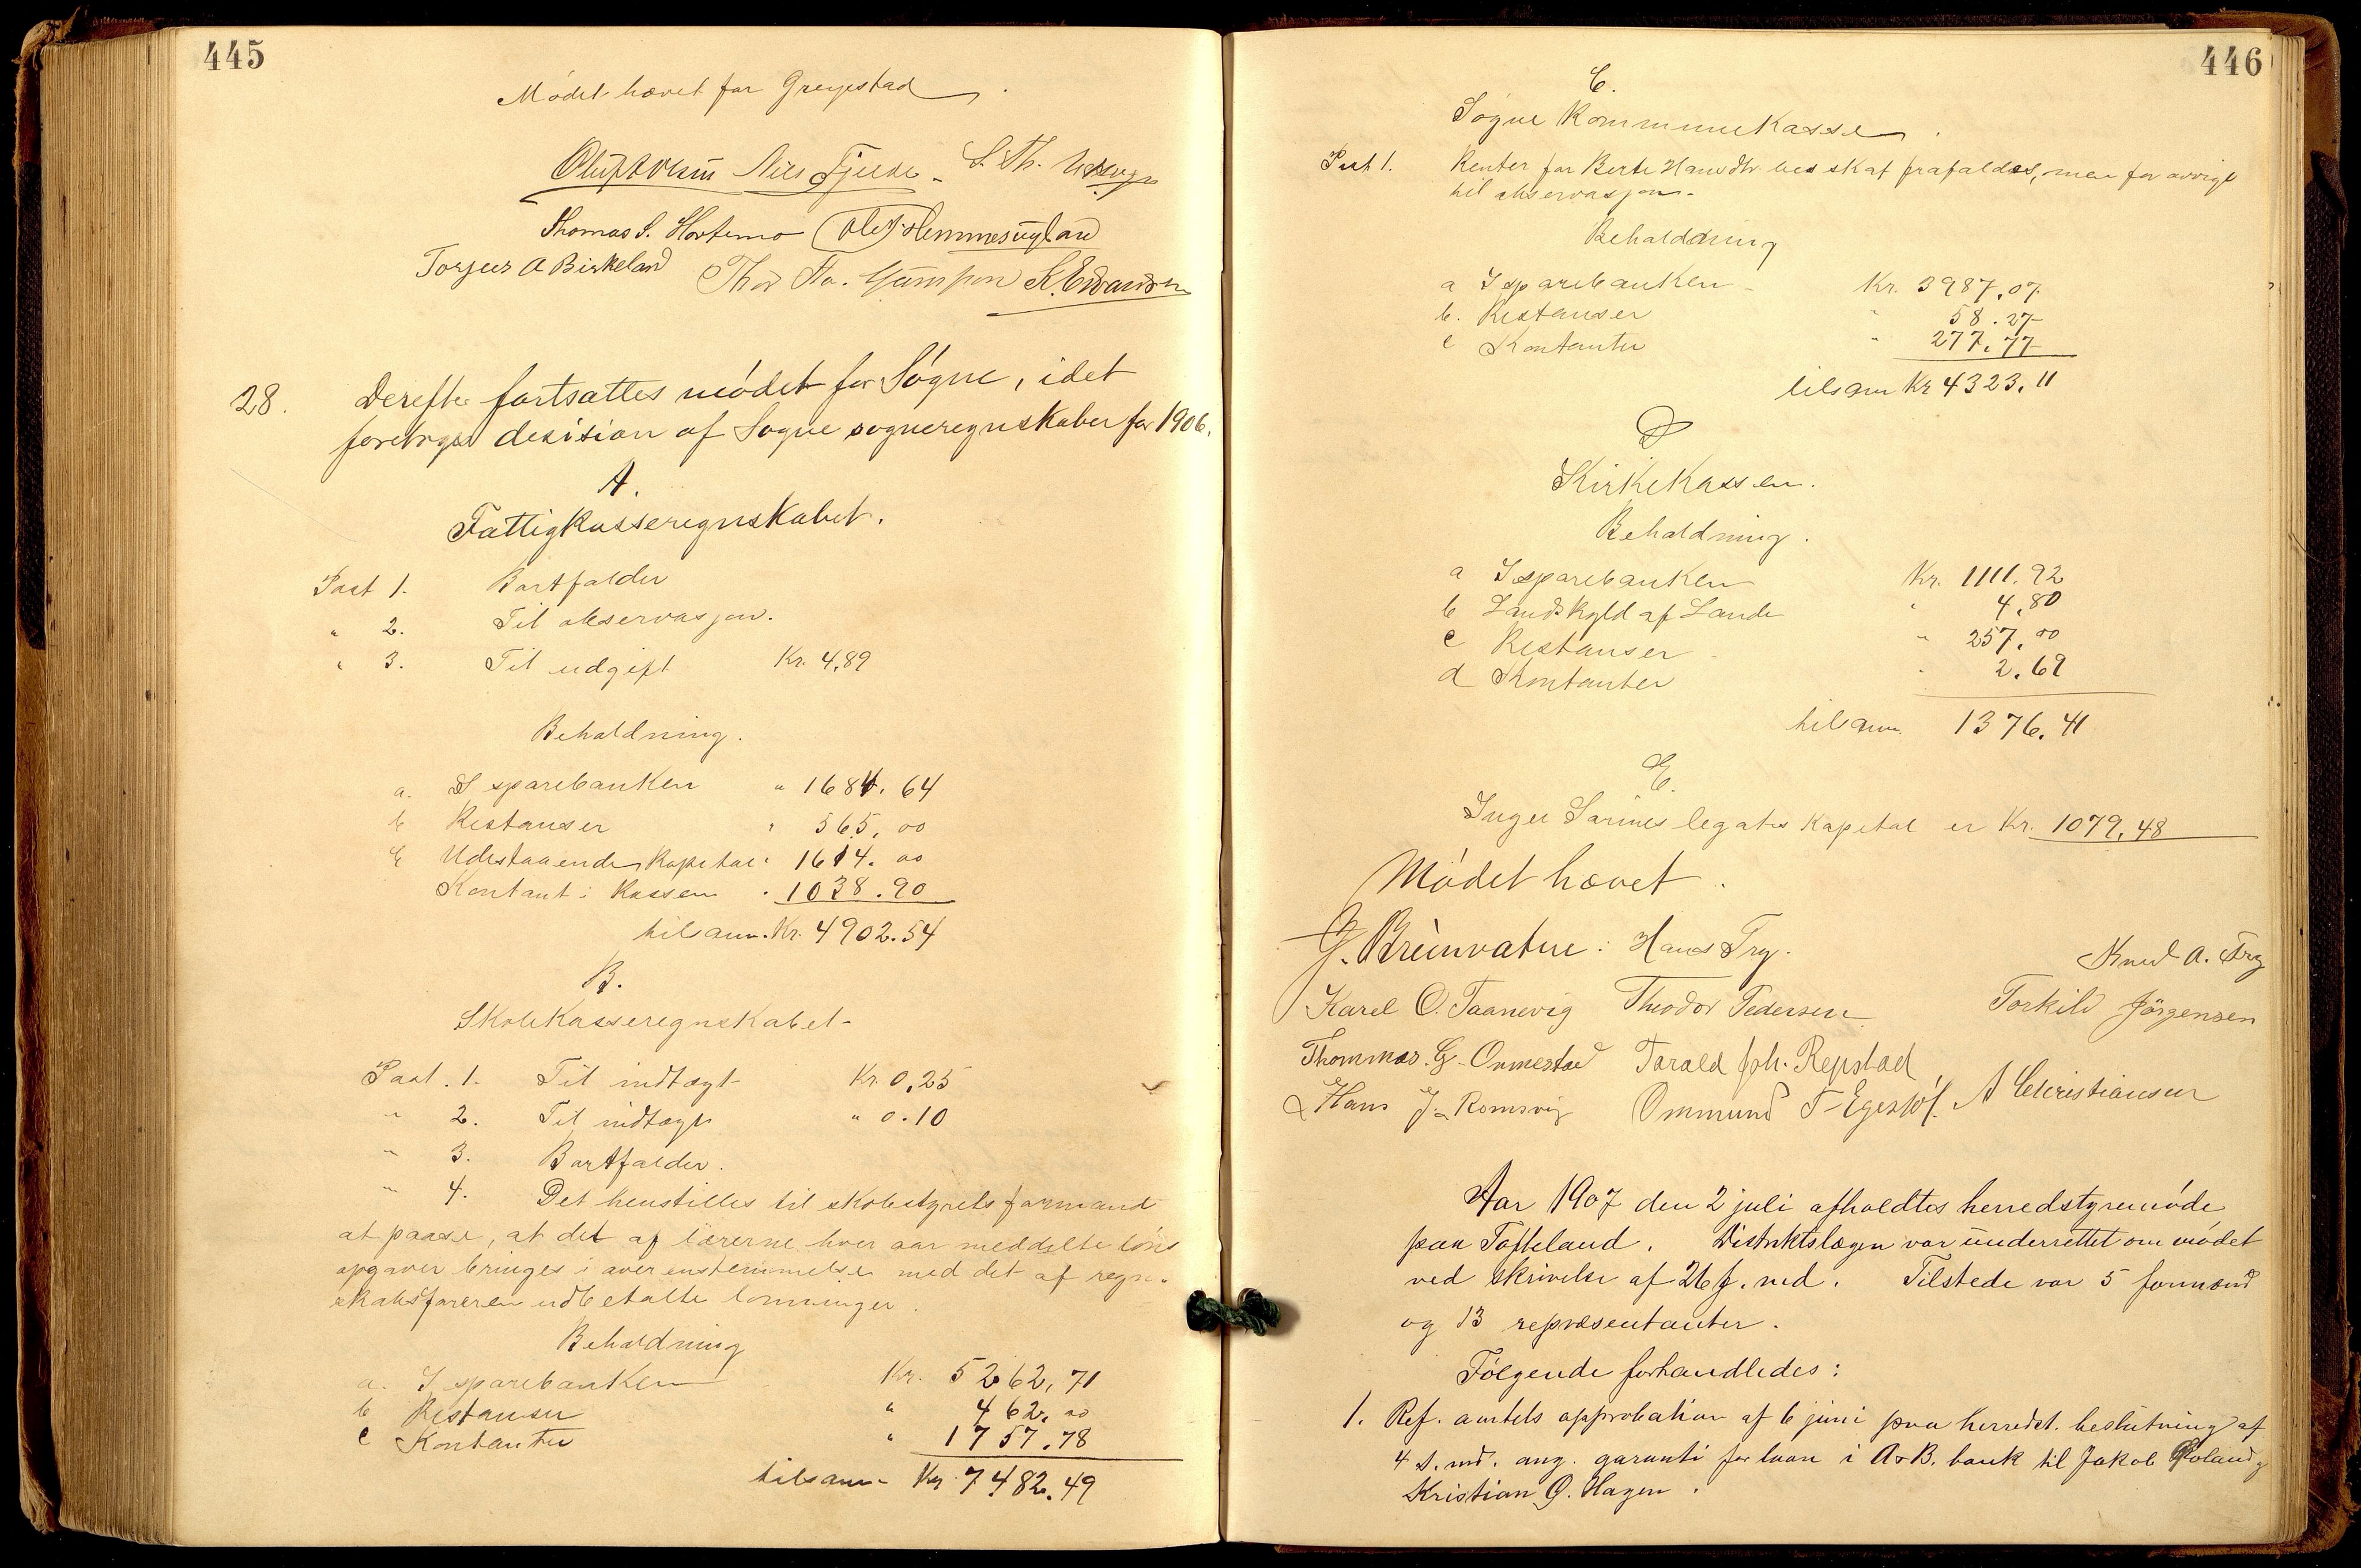 445
Mødet hævet for Greipstad
Nils Fjelde. S. Th.
Thomas S. Hortemo Ole J. Hemmesugland
Torjus A Birkeland Thor To. K. Edvardsen
28. Derefter fortsattes mødet for Søgne, idet
foretoges desision af Søgne sogneregnskaber for 1906.
A.
Fattigkasseregnskabet.
Post 1. Bortfalder
" 2. Til observasjon.
" 3. Til udgift Kr. 4,89
Behaldning.
a. I sparebanken " 1684. 64
b Restanser " 565. 00
c Udestaaende kapital " 1614. 00
Kontant i kassen " 1038. 90
tilsam. Kr. 4902.54
B.
Skolekasseregnskabet-
Post. 1. Til indtægt Kr. 0,25
" 2. Til indtægt " 0.10
" 3. Bortfalder.
" 4. Det henstilles til skolestyrets formand
at paase, at det af lærerne hver aar meddelte løns
opgaver bringes i overenstemmelse med det af regn-
skabsføreren udbetalte lønninger.
Behaldning
a. I sparebanken Kr. 5262,71
b Restanser " 462. 00
c Kontanter " 1757.78
tilsam- Kr. 7482.49
446
C.
Søgne Kommunekasse.
Post 1. Renter for Berte Hansdtr. skat frafaldes, men for øvrigt
til observasjon.
Behaldning
a I sparebanken Kr. 3987.07
b. Restanser " 58.27
c Kontanter " 277.77
tilsam Kr 4323.11
D
Kirkekassen.
Behaldning.
a I sparebanken Kr. 1111.92
b Landskyld af Lande " 4.80
c Restanser " 257.00
d Kontanter " 2.69
tilsam. 1376.41
E.
Inger Sørines legats kapital er Kr. 1079.48
Mødet hævet.
G. Breinvatne. Hans Try. Knud A. Try
Karel O. Taanevig Theodor Pedersen Torkild Jörgensen
Thommas. G. Ormestad Tarald Joh. Repstad
Hans J. Romsvig Ommund T. A Christiansen
Aar 1907 den 2 juli afholdtes herredstyremøde
paa Tofteland. Distriktslægen var underrettet om mødet
ved skrivelse af 26 f. md. Tilstede var 5 formænd
og 13 repræsentanter.
Følgende forhandledes:
1. Ref. amtets approbation af 6 juni paa herredst. beslutning af
4 s. md. ang. garanti for laan i A & B. bank til Jakob
Kristian O. Hagen.